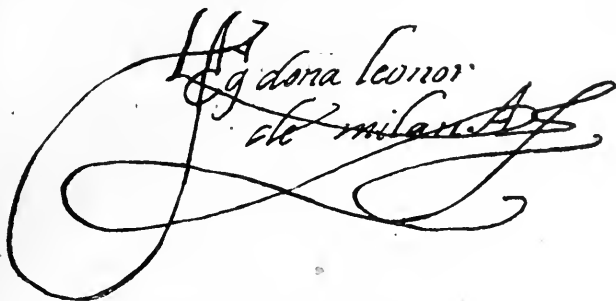 dona leonor
de milan